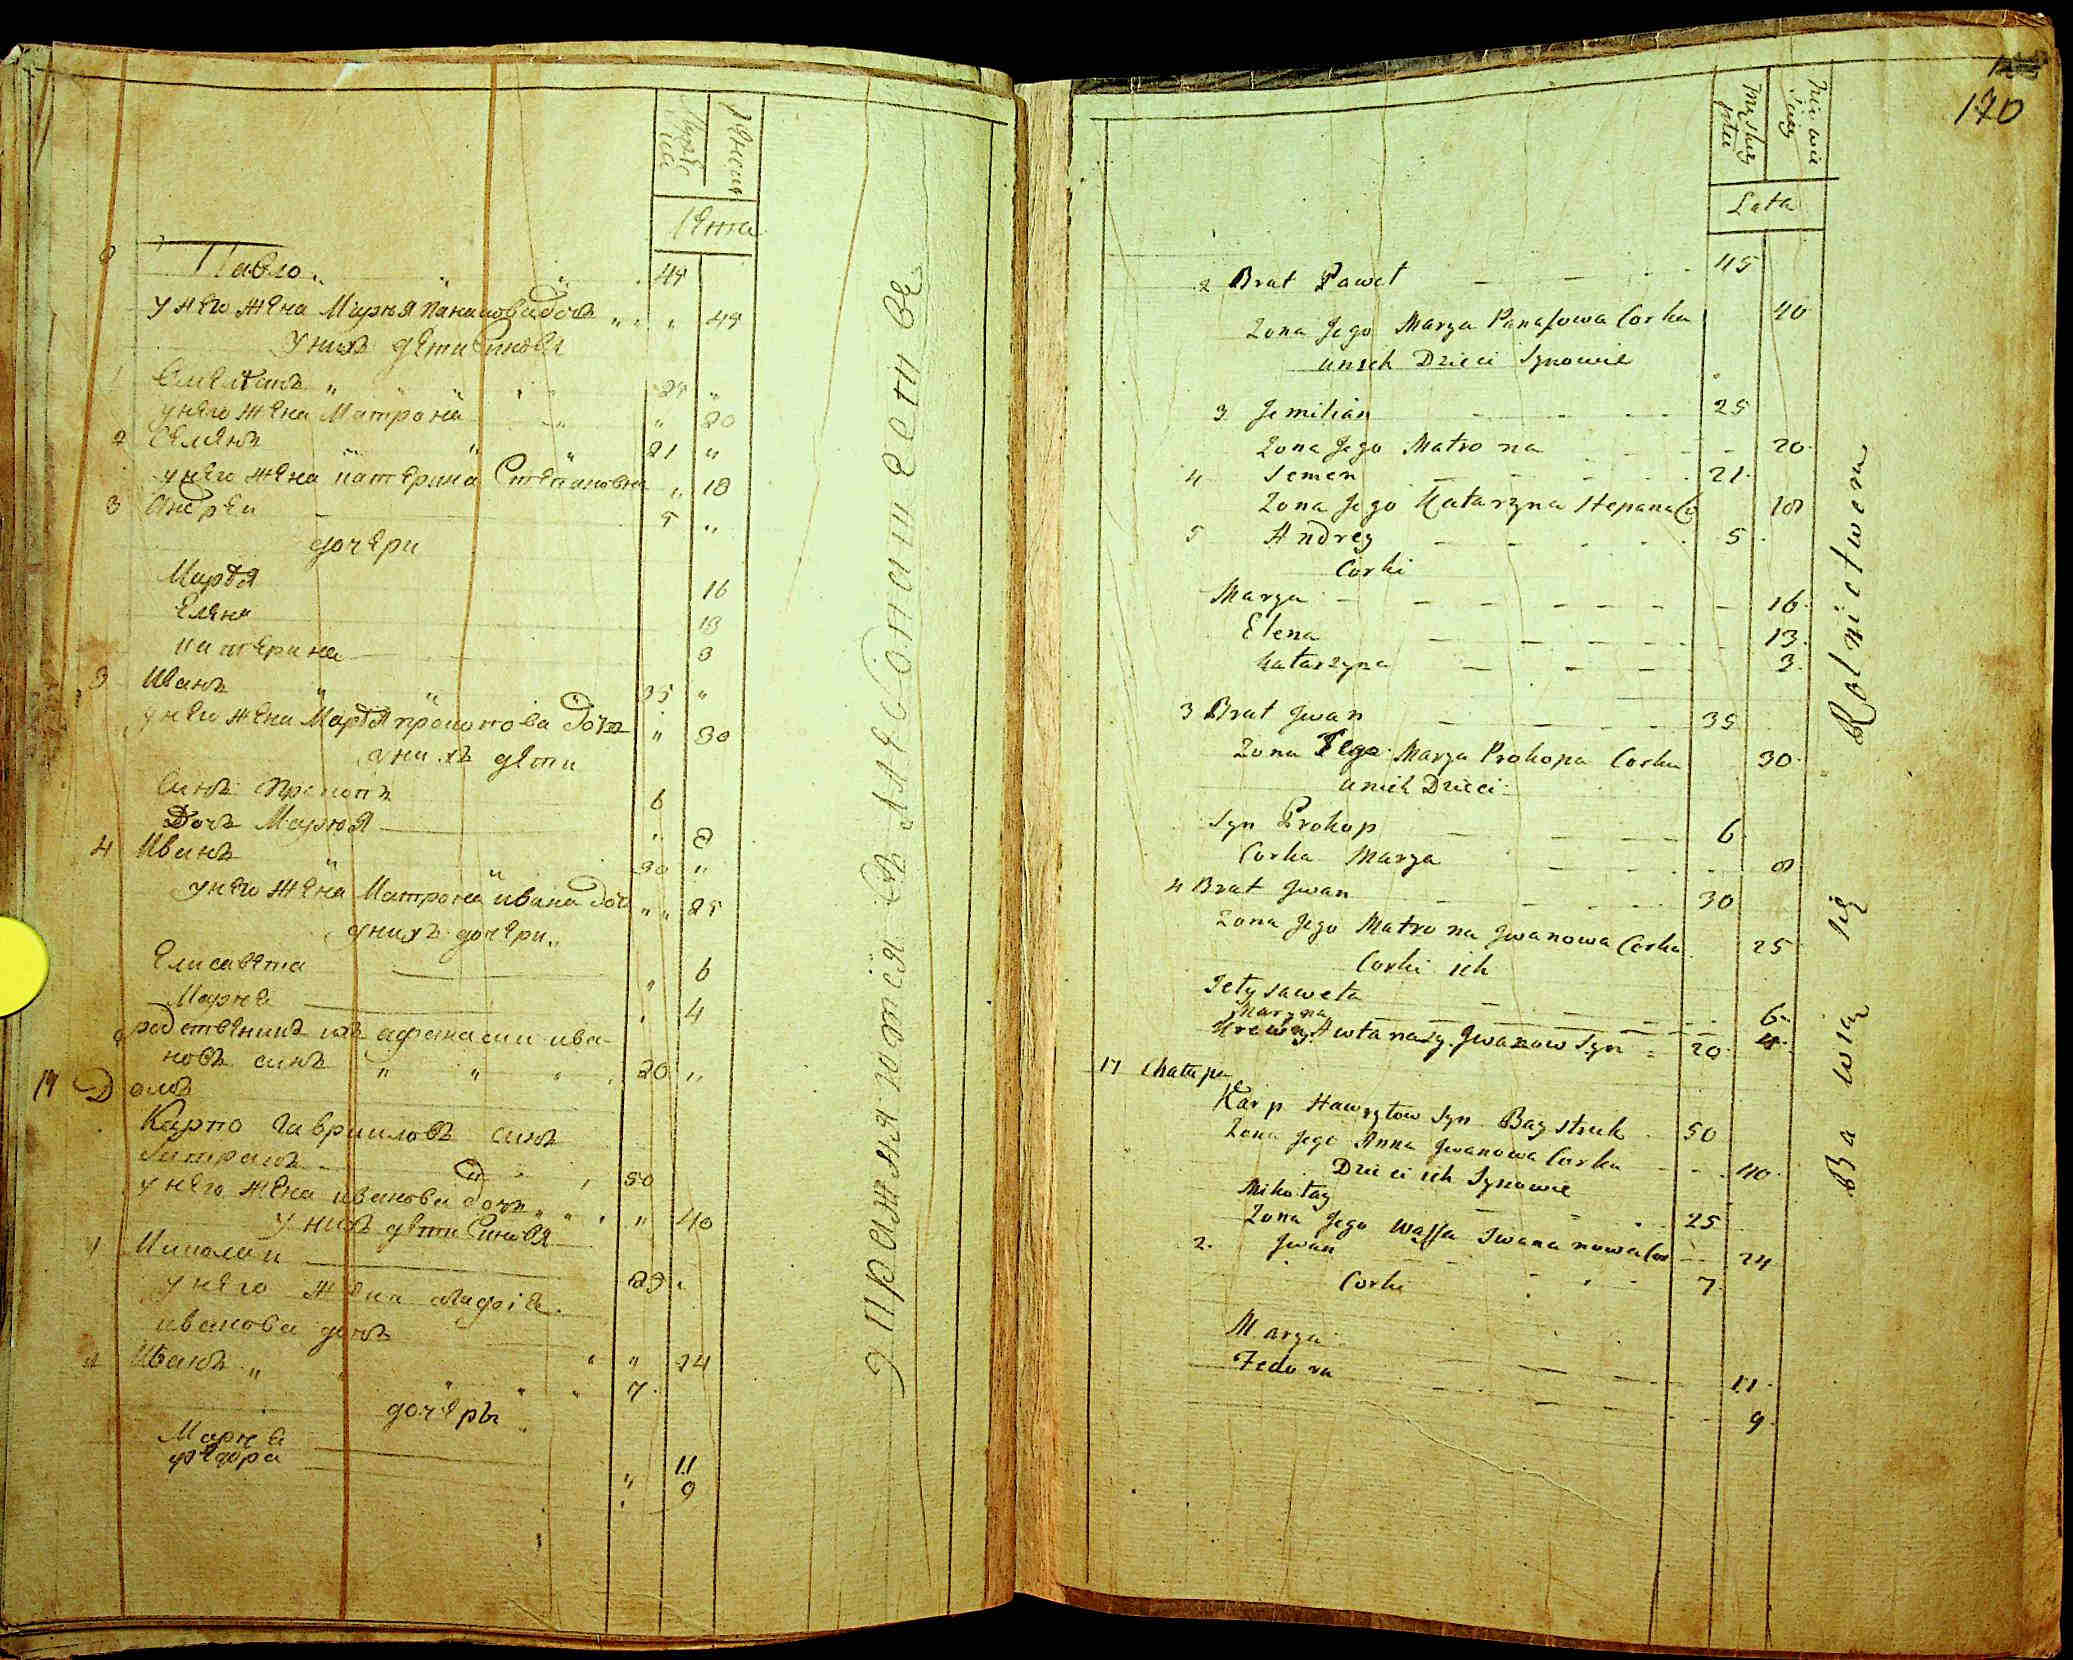 Мужеска
Женска
Лета
2 Павло „ „ „ 45
у него жена Марья панасова дочь „ „ „ 45
у них дети Синовя
1 Емелянъ „ „ „ 25 „
у него жена Матрона „ „ 20
2 Семенъ „ „ „ 21 „
у него жена катерина Степановна „ 18
3 Андреи 5 „
дочери
Марья 16
Елена 13
катерина 3
3 Иванъ „ „ 35 „
у него жена Марья прокопова дочь „ 30
у нихъ дети
Синъ Прокопъ 6
Дочь Марья „ 8
4 Иванъ „ „ 30 „
у него жена Матрона ивана доч „ „ 25
у нихъ дочери „
Елисавета „ 6
Марья „ 4
родственникъ ихъ афанасии ива-
новъ синъ „ „ „ 20 „
17 Домъ
Карпо Гавриловъ синъ
50
у него жена иванова дочь „ „ „ 40
у нихъ дети Синовя
1 Николаи 25 „
у него жена
иванова дочь „ „ 24
2 Иванъ „ „ „ „ 7
дочеры
Марья 11
федора „ 9
Упражняются въ хлебопашестве
170
Męskiey płci
Niewieściey
Lata
2 Brat Paweł 45
Zona Jego Marya Panasowa Corka 40
unich Dzieci Synowie
3 Jemilian 25
Zona Jego Matrona 20
4 Semen 21
Zona Jego Katarzyna Stepana Co 18
5 Andrey 5
Corki
Marya 16
Elena 13
Katarzyna 3
3 Brat Jwan 35
Zona Jego Marya Prokopa Corka 30
unich Dzieci
Syn Prokop 6
Corka Marya 8
4 Brat Jwan 30
Zona Jego Matrona Jwanowa Corka 25
Corki ich
Jelysaweta 6
Maryna 4
Krewny Awtanazy Jwanow Syn 20
17 Chałupa
Karp Hawryłow Syn Baystruk 50
Zona Jego Anna Jwanowa Corka 40
Dzieci ich Synowie
Mikołay 25
Zona Jego Wassa Iwana nowa Cor 24
2. Jwan 7
Corki
Marya 11
Fedora 9
Bawią się Rolnictwem